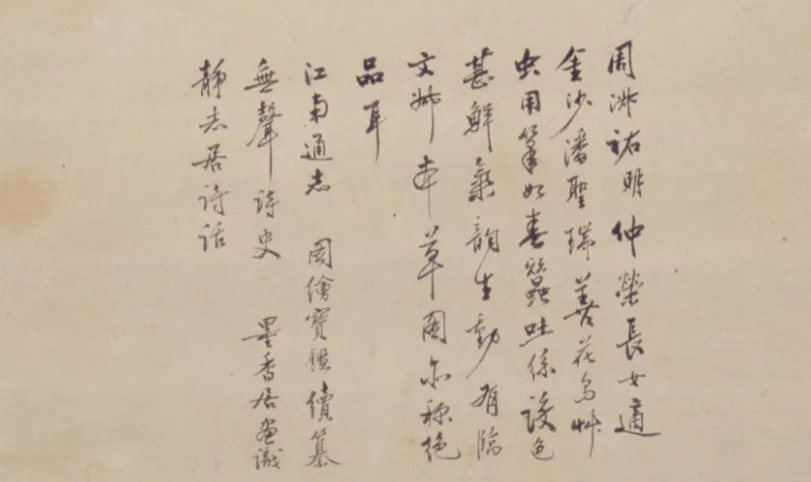 周淑祜明仲榮長女適
金沙潘聖瑞善花鳥艸
虫用筆如春蠶吐絲設色
甚鮮氣韻生動有臨
文俶本草圖亦稱絕
品耳
江南通志 國繪寶鑑續纂
無聲詩史 墨香居畫識
靜志居詩話